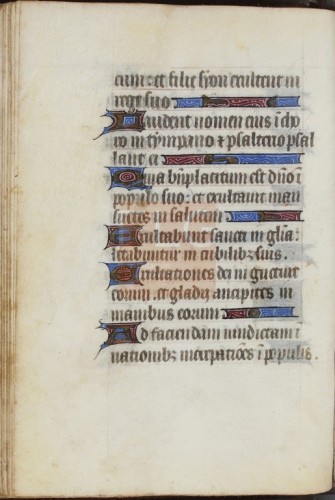 eum: et filie syon exultent in
rege suo
Laudent nomen eius i cho
ro in tympano ⁊ psalterio psal
lant ei
Quia bn̄placitum est dn̄o ī
populo suo: et exultauit man
suetos in salutem
Exultabūt sancti in gl̄ia:
letabuntur in cubilibꝫ suis.
Exultationes dei in guttuē
eorum. et gladij ancipites in
manibus eorum
Ad faciendam uindictam ī
nationibꝫ increpatiōes ī populis.